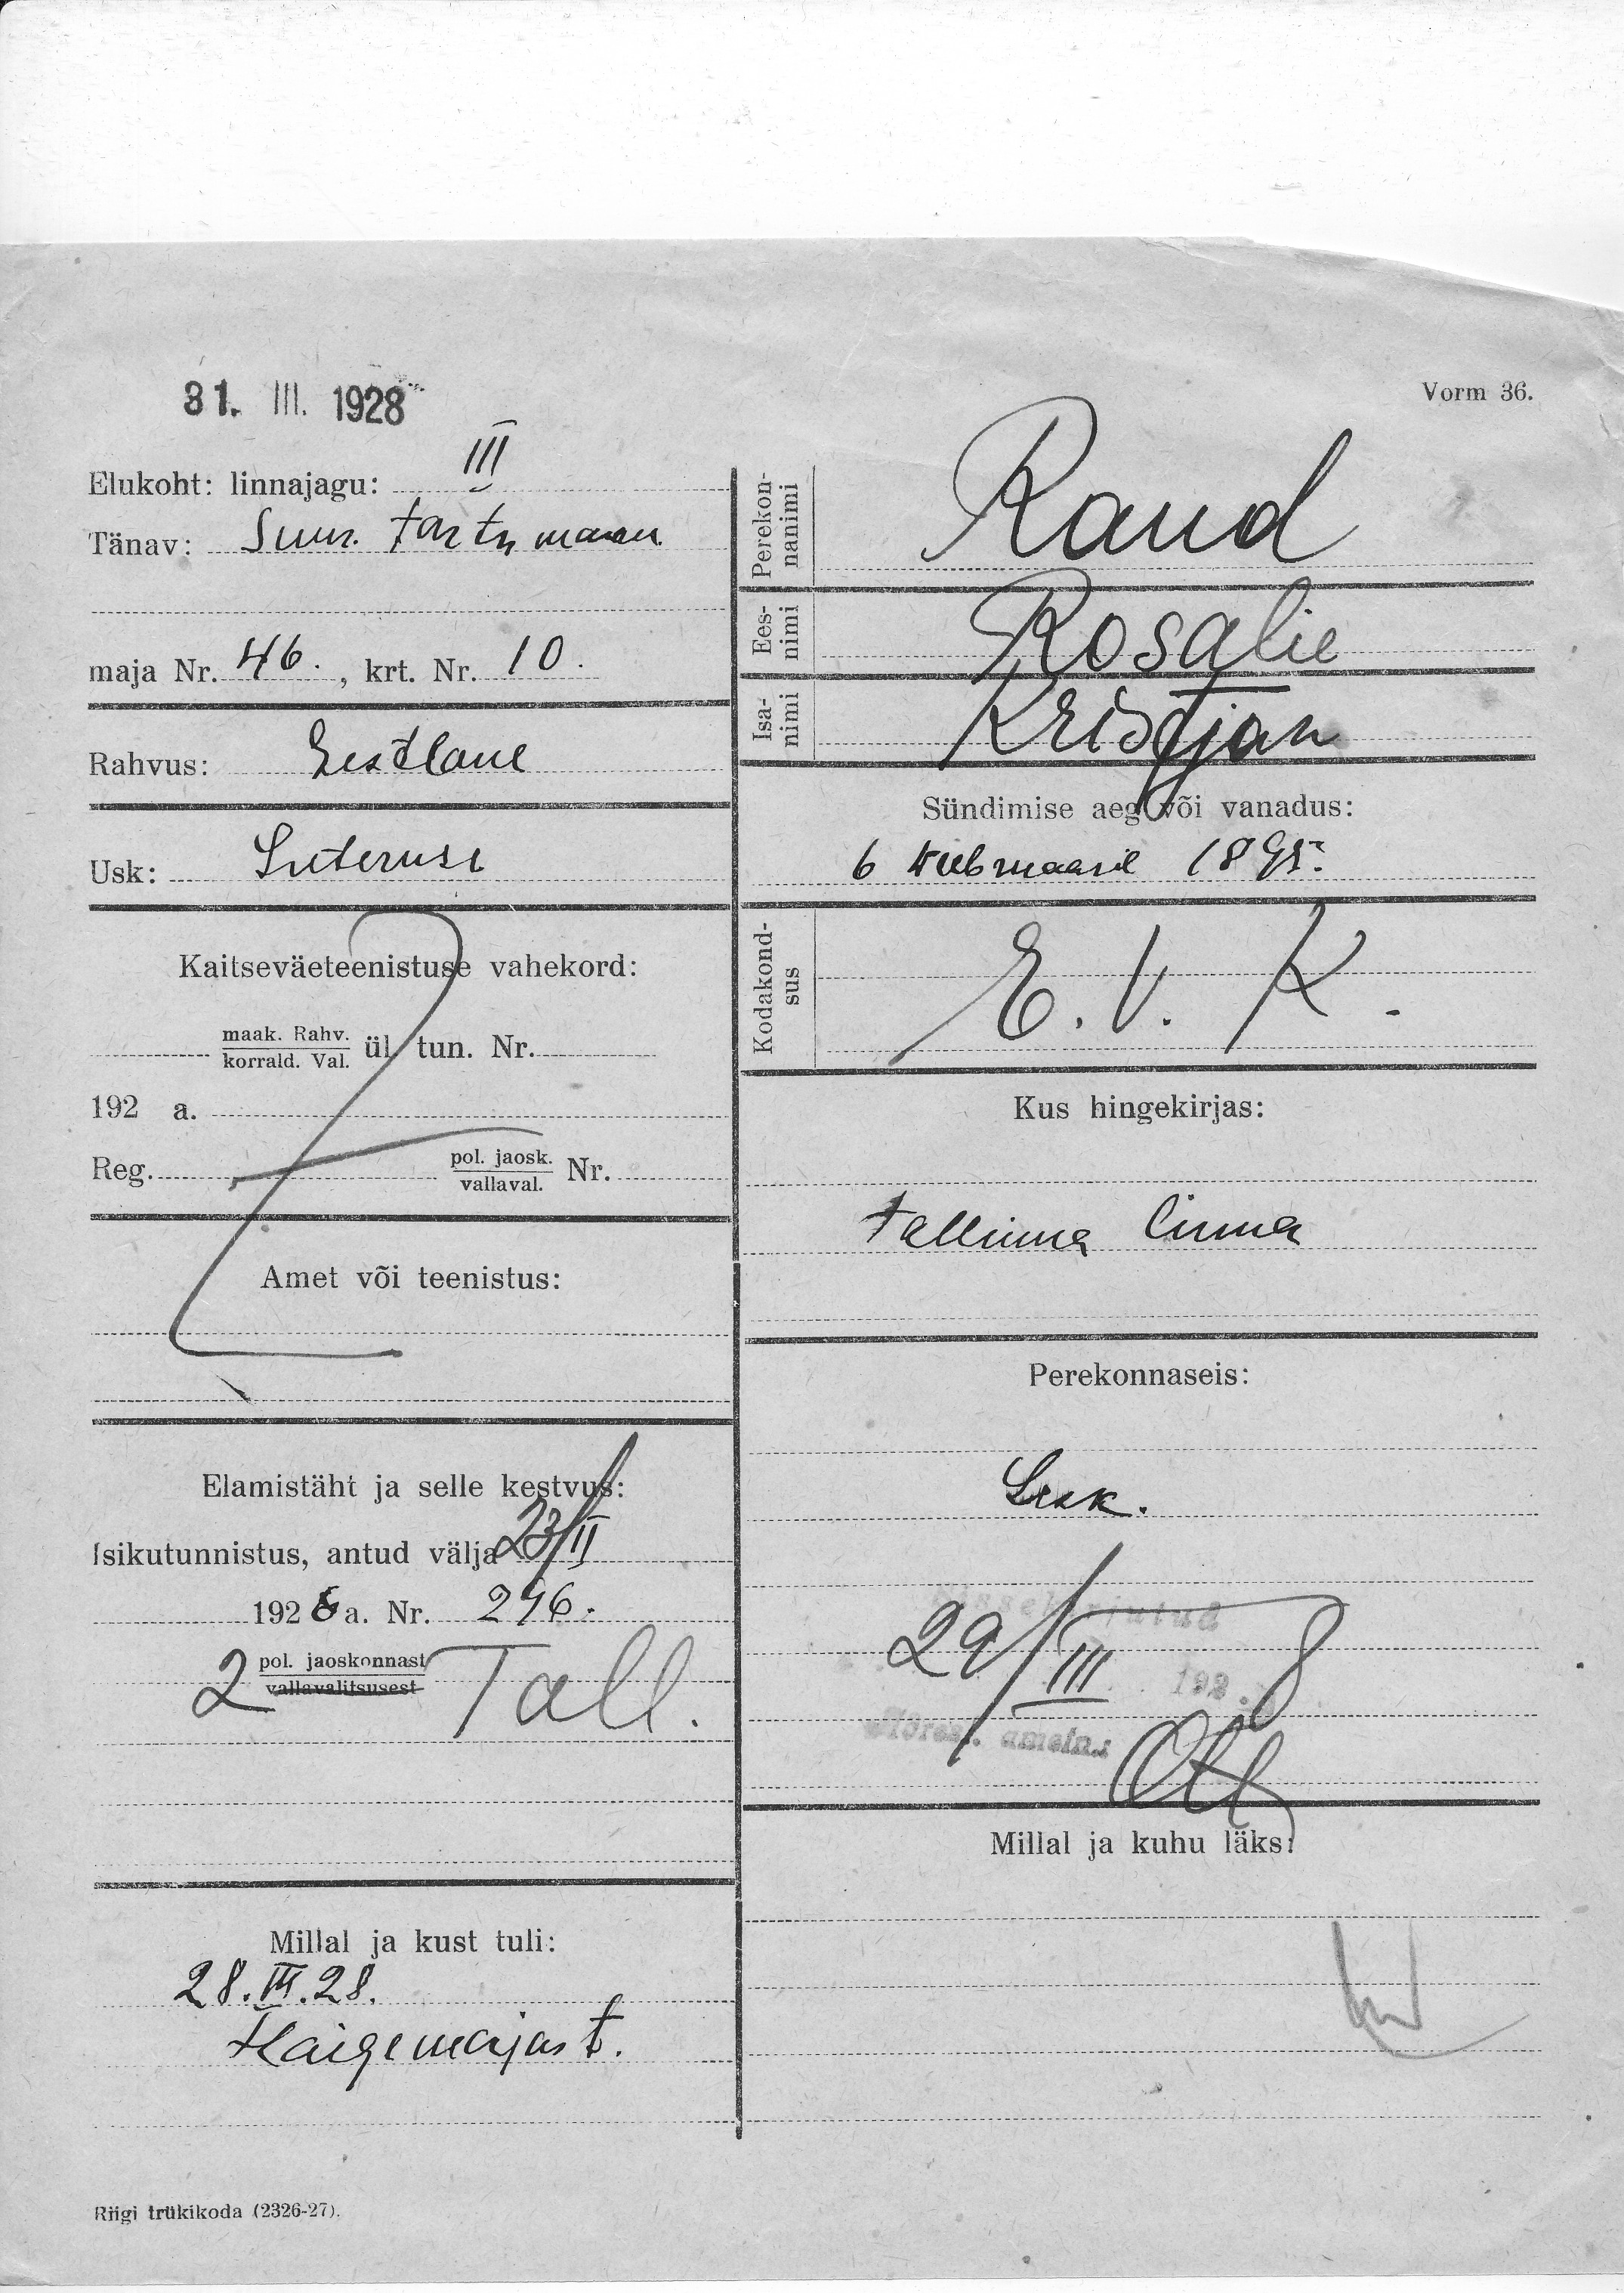 31. III. 1928
Vorm 36.
Elukoht: linnajagu: III
Tänav: Suur. Tartu maan.
maja Nr. 46. , krt. Nr. 10.
Rahvus: Eestlane
Usk: Luterusi
Kaitseväeteenistuse vahekord:
maak. Rahv.
korrald. Val. ül. tun. Nr.
192 a.
Reg. pol. jaosk.
vallaval. Nr.
Amet või teenistus:
Elamistäht ja selle kestvus:
Isikutunnistus, antud välja 23/II
1928 a. Nr. 296.
2 pol. jaoskonnast Tall.
vallavalitsusest
Millal ja kust tuli:
28.III.28.
Haigemajast.
Riigi trükikoda (2326-27).
Perekon-
nanimi Raud
Ees-
nimi Rosalie
Isa-
nimi Kristjan
Sündimise aeg või vanadus:
6 veebruaaril 1895.
Kodakond-
sus E. V. K.
Kus hingekirjas:
Tallinna linna
Perekonnaseis:
Lesk.
Sissekirjutud
29/III 192. 8
ametn.:
Millal ja kuhu läks: